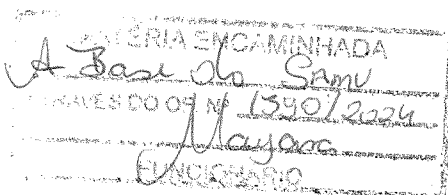 MATÉRIA ENCAMINHADA
A Base do Samu
ATRAVÉS DO OF. Nº 1590/2024
Mayara
FUNCIONÁRIO